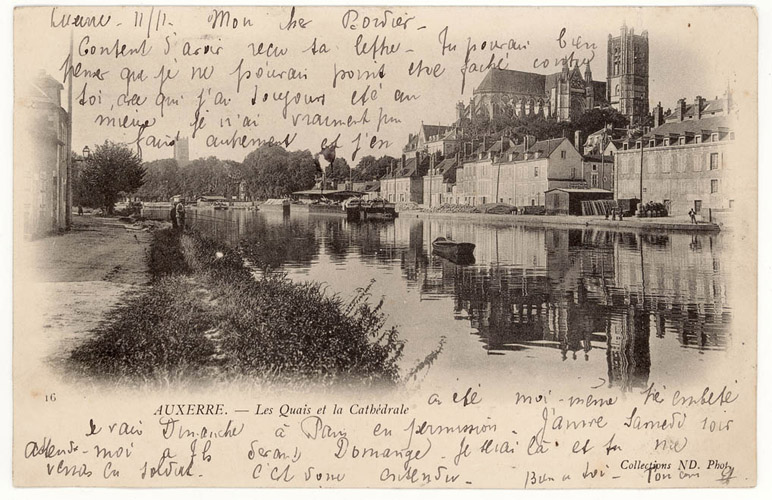 11/1. Mon cher Bordier –
Content d'avoir reçu ta lettre – Tu pouvais bien
penser que je ne pouvais point être fâché contre
toi, ce qui j'ai toujours été au
même je n'ai vraiment pu
faire autrement et j'en
16
AUXERRE. — Les Quais et la Cathédrale
a été moi-même embêté
Je vais Dimanche à Paris en permission. J'arrive Samedi soir
attends-moi à 2h devant Domange. Je serai là et tu me
verras en soldat. C'est donc entendu – Bien à toi – Ton ami
Collections ND. Phot.